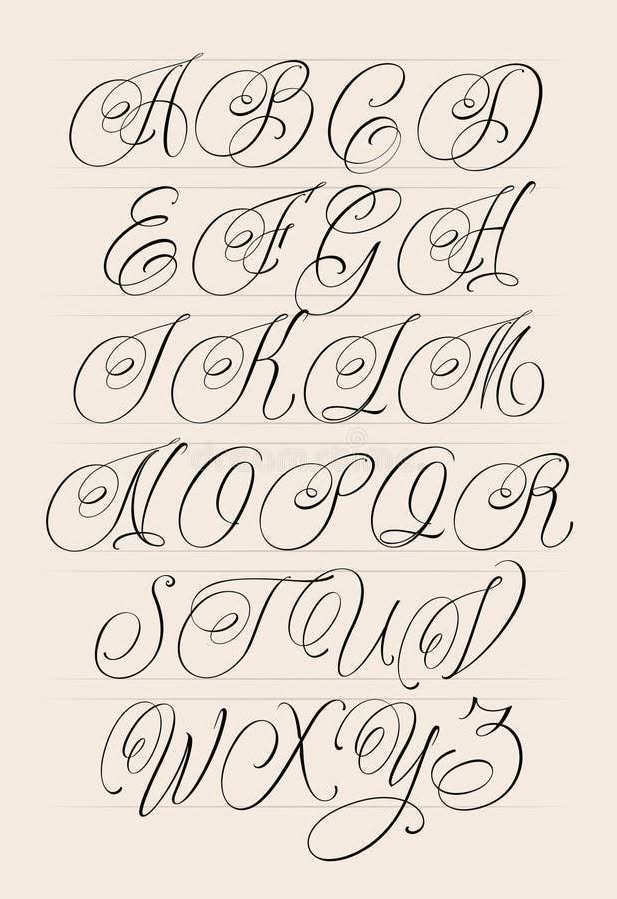 A B C D
E F G H
I K L M
N O P Q R
S T U V
W X Y Z